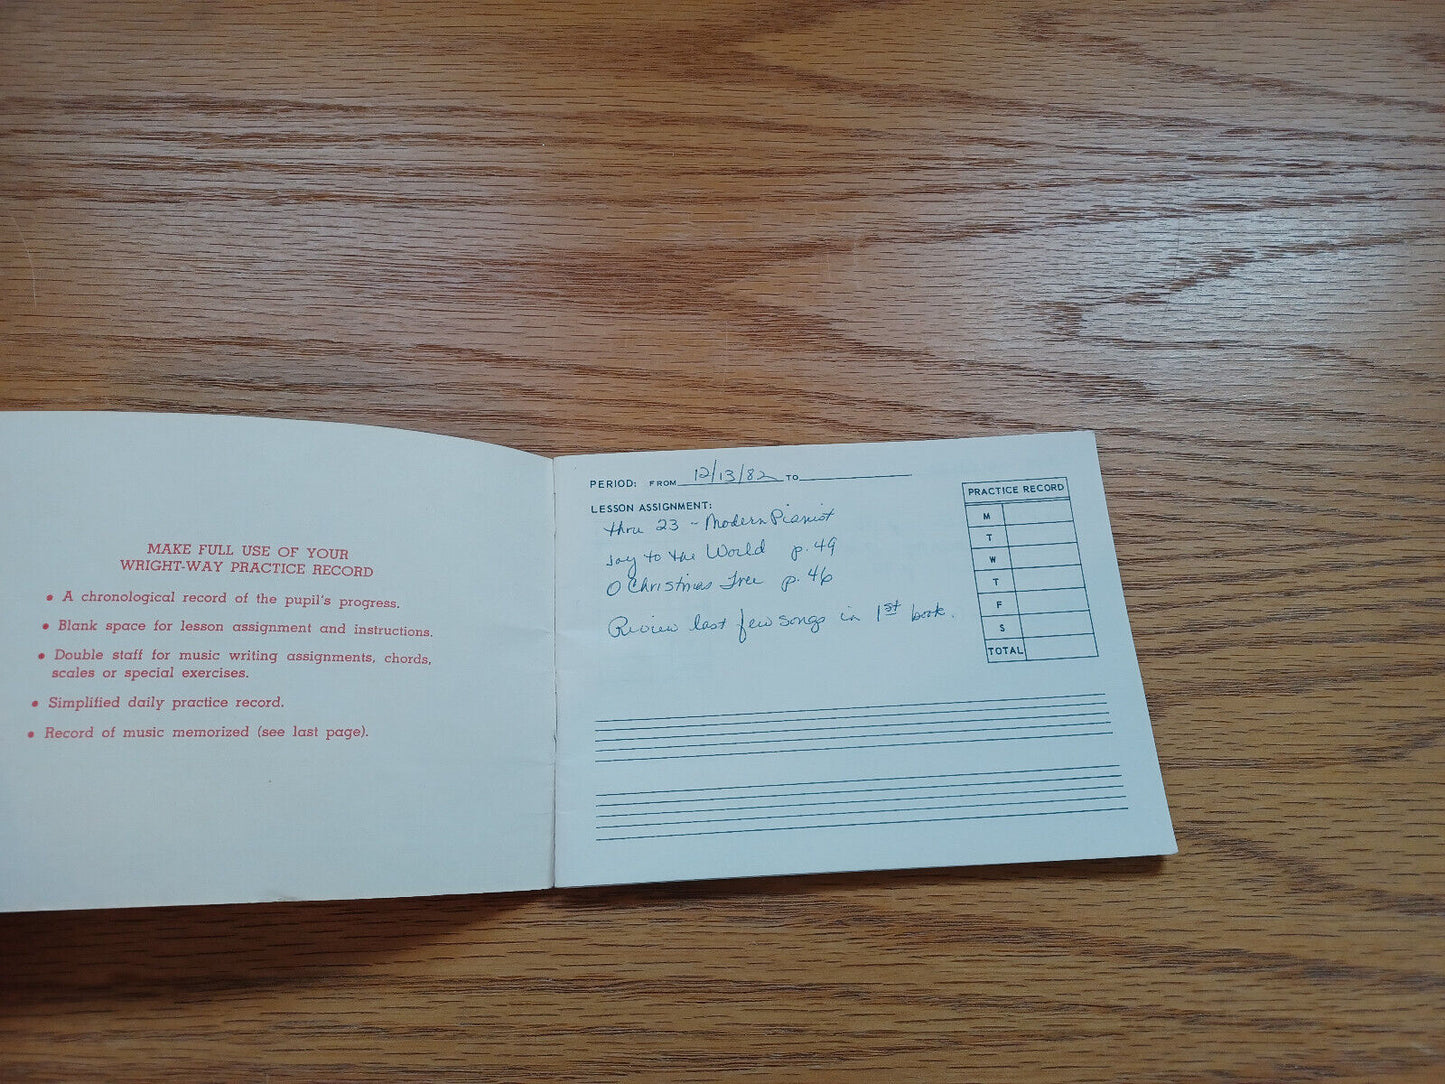 MAKE FULL USE OF YOUR
WRIGHT-WAY PRACTICE RECORD
• A chronological record of the pupil's progress.
• Blank space for lesson assignment and instructions.
• Double staff for music writing assignments, chords,
scales or special exercises.
• Simplified daily practice record.
• Record of music memorized (see last page).
PERIOD: FROM 12/13/82 TO
LESSON ASSIGNMENT:
thru 23 - Modern Pianist
Joy to the World p. 49
O Christmas Tree p. 46
Review last few songs in 1st book.
PRACTICE RECORD
M
T
W
T
F
S
TOTAL